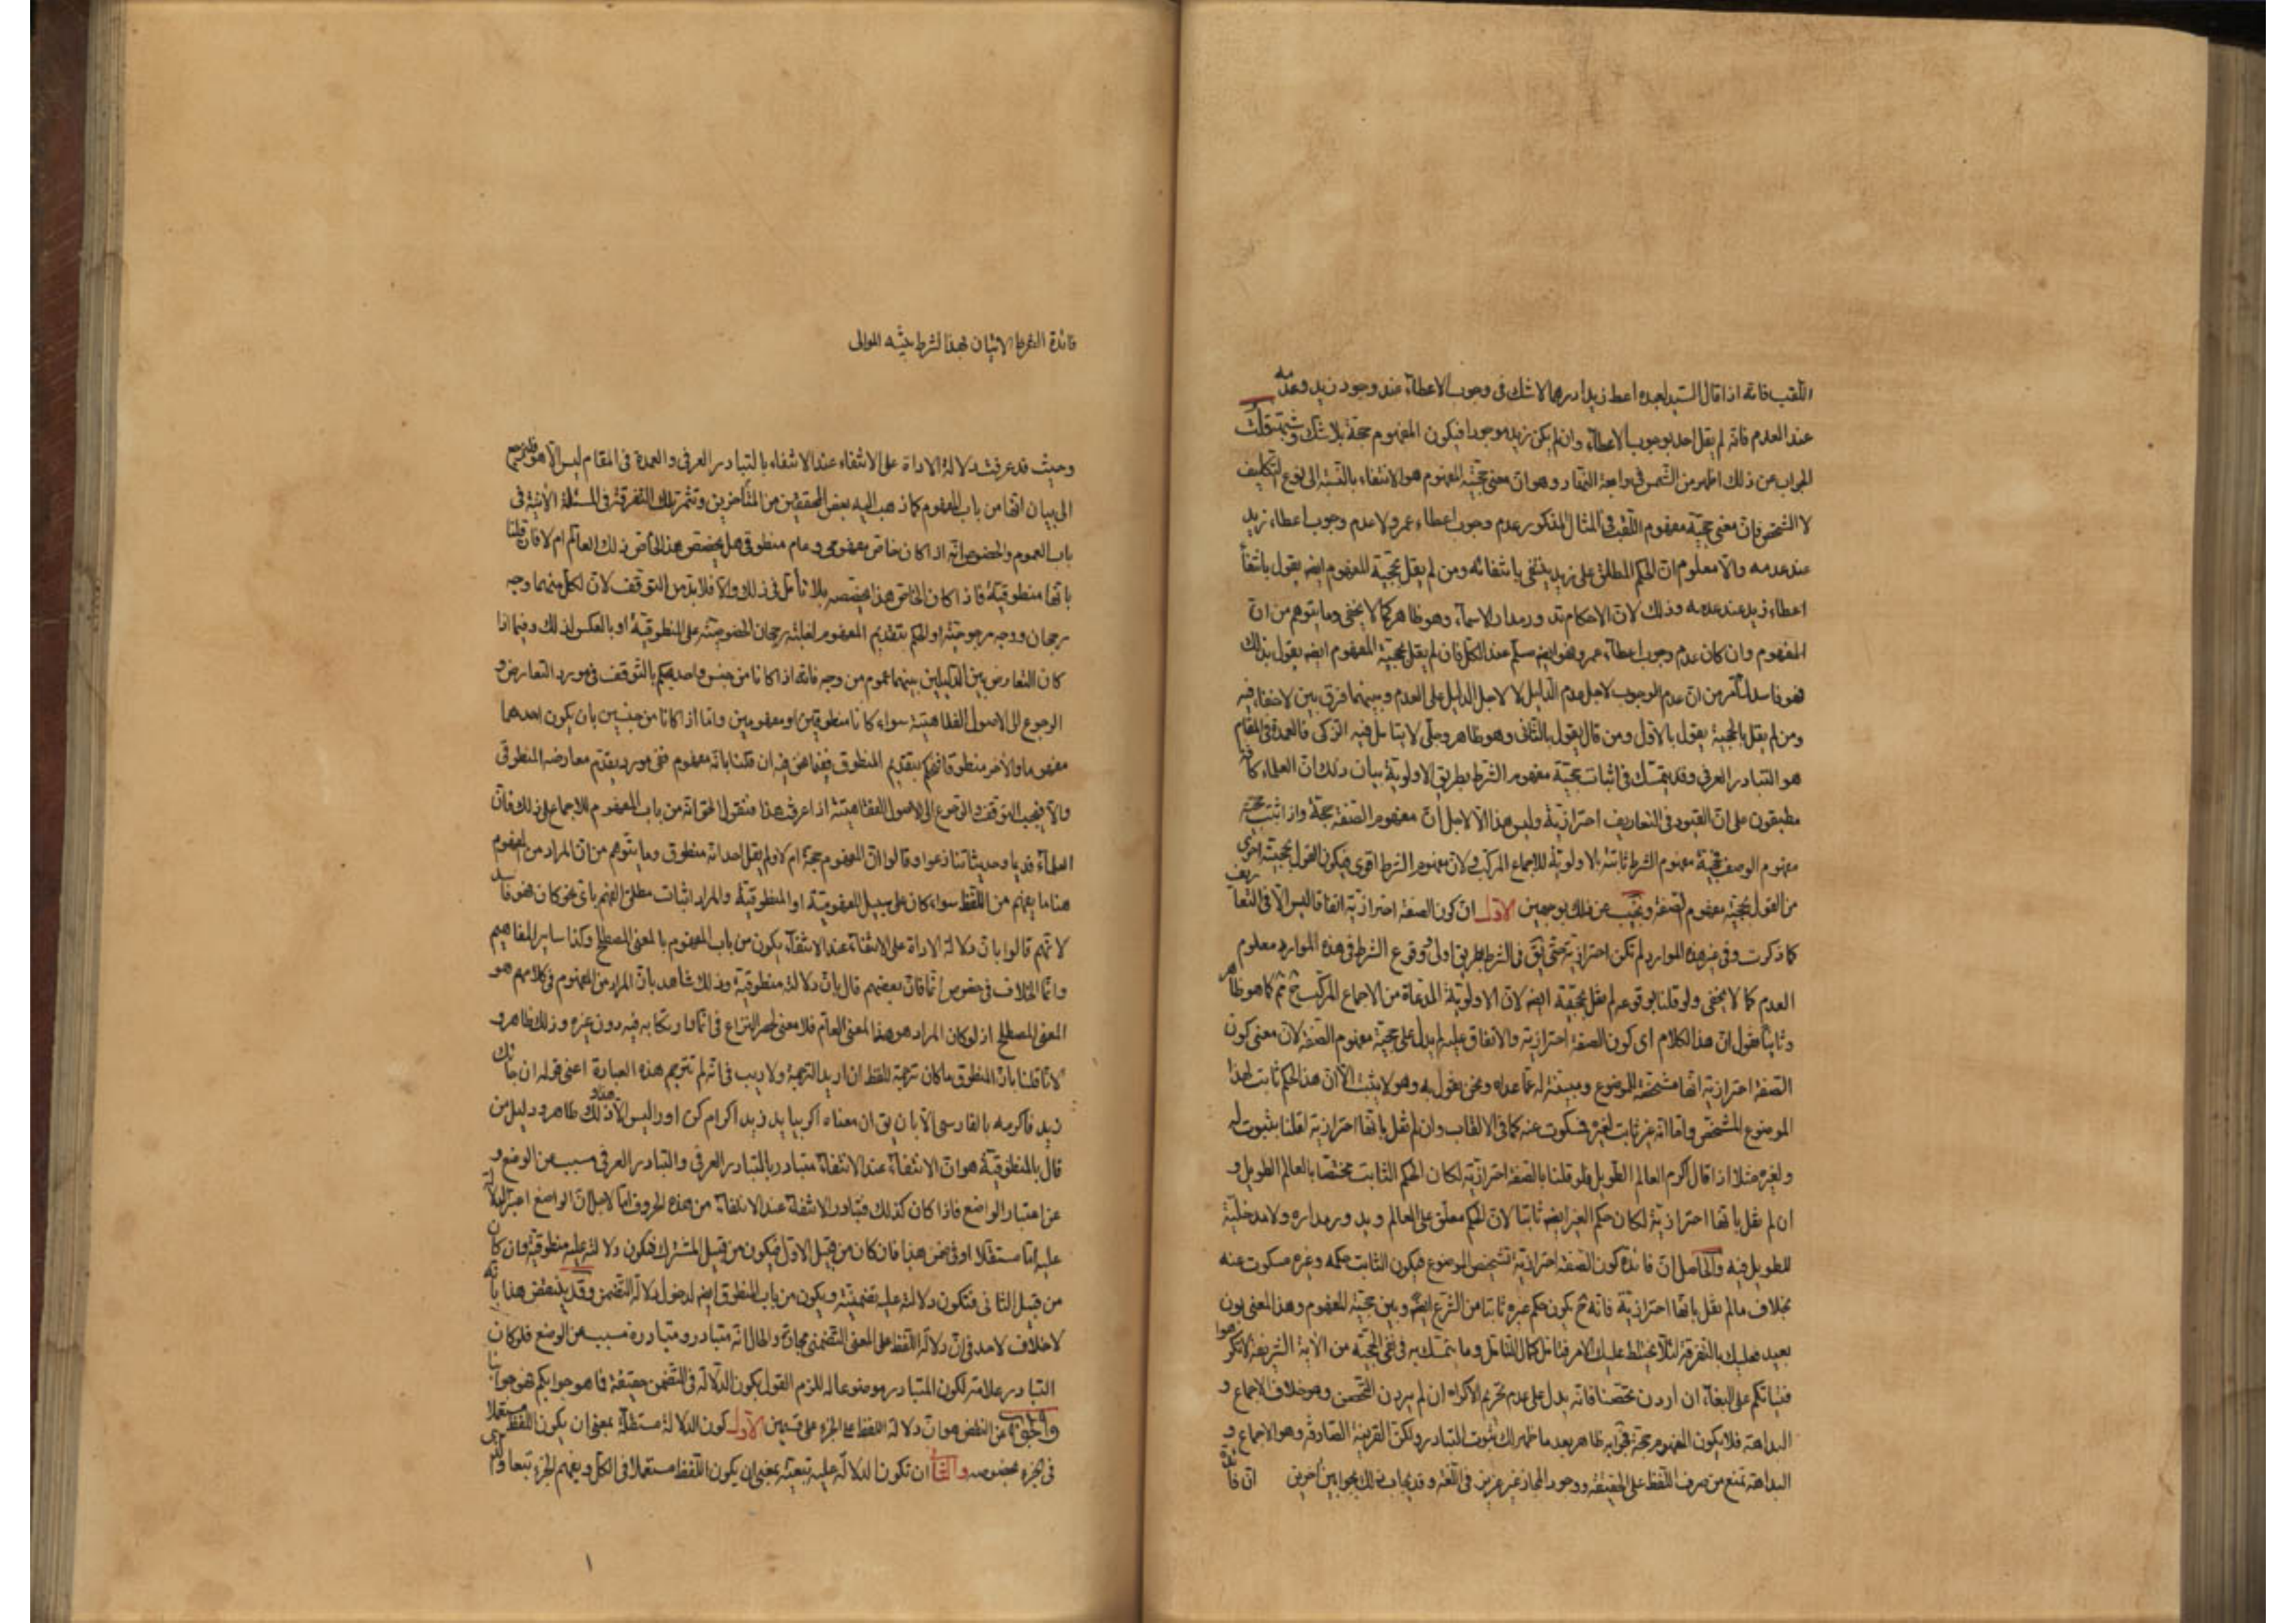 اللقب فانه اذا قال السيد لعبده اعط زيدا درهما لا شك فى وجوب الاعطاء عند وجود زيد وعدمه
عند العدم فانه لم يقل احد بوجوب الاعطاء وان لم يكن زيد موجودا فيكون المفهوم حجة بلا شك وشبهة قلت
الجواب عن ذلك اظهر من الشمس فى رابعة النهار وهو ان معنى حجية المفهوم هو الانتفاء بالنسبة الى نوع التكليف
لا الشخص فان معنى حجية مفهوم اللقب فى المثال المذكور عدم وجوب اعطاء عمرو لا عدم وجوب اعطاء زيد
عند عدمه والا معلوم ان الحكم المطلق على زيد ينتفى بانتفائه ومن لم يقل بحجية المفهوم ايضا يقول بانتفاء
اعطاء زيد عند عدمه وذلك لان الاحكام تدور مدار الاسماء وهو ظاهر كما لا يخفى وما يتوهم من ان
المفهوم وان كان عدم وجوب اعطاء عمرو فهو ايضا مسلم عند الكل فان لم يقل بحجية المفهوم ايضا يقول بذلك
فهو فاسد لما مر من ان عدم الوجوب لاجل عدم الدليل لا لاجل الدليل على العدم وبينهما فرق بين لا خفاء فيه
ومن لم يقل بالحجية يقول بالاول ومن قال يقول بالثانى وهو ظاهر وجلى لا يتامل فيه الزكى فالعمدة فى المقام
هو التبادر العرفى وقد يتمسك فى اثبات حجية مفهوم الشرط بطريق الاولوية بيان ذلك ان العلماء كافة
مطبقون على ان القيود فى التعاريف احترازية وليس هذا الا لاجل ان مفهوم الصفة حجة واذا ثبت حجية
مفهوم الوصف فحجية مفهوم الشرط ثابتة بالاولوية للاجماع المركب ولان مفهوم الشرط اقوى فيكون القول بحجيته احرى
من القول بحجية مفهوم الصفة ونجيب عن ذلك بوجهين الاول ان كون الصفة احترازية اتفاقا ليس الا فى التعاريف
كما ذكرت وفى غير هذه الموارد لم تكن احترازية حتى يق فى الشرط بطريق اولى ووقوع الشرط فى هذه الموارد معلوم
العدم كما لا يخفى ولو قلنا بوقوعه لم نقل بحجيته ايضا لان الاولوية المدعاة من الاجماع المركب ثم كما هو ظاهر
وثانيا نقول ان هذا الكلام اى كون الصفة احترازية والاتفاق عليه لم يدل على حجية مفهوم الصفة لان معنى كون
الصفة احترازية انها مشخصة للموضوع ومبينة له عما عداه ونحن نقول به وهو لا يثبت الا ان هذا الحكم ثابت لهذا
الموضوع المشخص واما انه غير ثابت لغيره فسكوت عنه كما فى الالقاب وان لم نقل بانها احترازية لقلنا بثبوت له
ولغيره مثلا اذا قال اكرم العالم الطويل فلو قلنا بالصفة احترازية لكان الحكم الثابت مختصا بالعالم الطويل و
ان لم نقل بانها احترازية لكان حكم الغير ايضا ثابتا لان الحكم معلق على العالم ويدور مداره ولا مدخلية
للطويل فيه والحاصل ان فائدة كون الصفة احترازية تشخيص الموضوع فيكون الثابت حكمه وغيره مسكوت عنه
بخلاف ما لم نقل بانها احترازية فانه ح يكون حكم غيره ثابتا من الشرع ايضا وبين حجية المفهوم وهذا المعنى بون
بعيد فعليك بالتفرقة لئلا يختلط عليك الامر فتامل كمال التامل وما يتمسك به فى نفى الحجية من الآية الشريفة لا تكرهوا
فتياتكم على البغاء ان اردن تحصنا فانه يدل على عدم تحريم الاكراه ان لم يردن التحصن وهو خلاف الاجماع و
البداهة فلا يكون المفهوم حجة فجوابه ظاهر بعد ما ظهر لك ثبوت التبادر ولكن القرينة الصارفة وهو الاجماع و
البداهة تمنع من صرف اللفظ على الحقيقة ووجود المجاز غير عزيز فى اللغة وقد يجاب ذلك بجوابين اخرين ان فائدة
فائدة الشرط الاتيان بهذا الشرط الموالى
وحيث قد عرفت دلالة الاداة على الانتفاء عند الانتفاء بالتبادر العرفى والعمدة فى المقام ليس الا هو
الى بيان انها من باب المفهوم كما ذهب اليه بعض المحققين من المتأخرين وتثمر تلك التفرقة فى المسئلة الآتية فى
باب العموم والخصوص انه اذا كان خاص مفهومى وعام منطوقى هل يخصص هذا الخاص ذلك العام ام لا فان قلنا
بانها منطوقية فاذا كان الخاص هذا يخصصه بلا تأمل فى ذلك والا فلا بد من التوقف لان لكل منهما وجه
رجحان ووجه مرجوحية او الحكم بتقديم المفهوم لغلبة رجحان الخصوصية على المنطوقية او بالعكس لذلك وفيما اذا
كان التعارض بين الدليلين بينهما عموم من وجه فانه اذا كانا من جنس واحد يحكم بالتوقف فى مورد التعارض و
الرجوع الى الاصول الفقاهتية سواء كانا منطوقين او مفهومين واما اذا كانا من جنسين بان يكون احدهما
مفهوما والآخر منطوقا فيحكم بتقديم المنطوق ففيما نحن فيه ان قلنا بانه مفهوم ففى مورد يقدم معارضه المنطوقى
والا فيجب التوقف والرجوع الى الاصول الفقاهتية اذا عرفت هذا فنقول الحق انه من باب المفهوم للاجماع على ذلك فان
العلماء قديما وحديثا تنازعوا وقالوا ان المفهوم حجة ام لا ولم يقل احد انه منطوق وما يتوهم من ان المراد من المفهوم
هنا ما يفهم من اللفظ سواء كان على سبيل المفهومية او المنطوقية والمراد اثبات مطلق الفهم باى نحو كان فهو فاسد
لانهم قالوا بان دلالة الاداة على الانتفاء عند الانتفاء يكون من باب المفهوم بالمعنى المصطلح وكذا ساير المفاهيم
وانما الخلاف فى خصوص انما فان بعضهم قال بان دلالته منطوقية وذلك شاهد بان المراد من المفهوم فى كلامهم هو
المعنى المصطلح اذ لو كان المراد هو هذا المعنى العام فلا معنى لحصر النزاع فى انما وارتكابه فيه دون غيره وذلك ظاهر و
لانا قلنا بان المنطوق ما كان ترجمة للفظ ان اريد الترجمة ولا ريب فى انه لم تترجم هذه العبارة اعنى قوله ان جائك
زيد فاكرمه بالفارسى الا بان يق ان معناه اكر بيايد زيد اكرام كن اورا ليس الا ذلك هذا ظاهر ودليل من
قال بالمنطوقية هو ان الانتفاء عند الانتفاء متبادر بالتبادر العرفى والتبادر العرفى مسبب عن الوضع و
عن اعتبار الواضع فاذا كان كذلك فتبادر الانتفاء عند الانتفاء من هذه الحروف اما لاجل ان الواضع اعتبر
عليه اما مستقلا او فى ضمن هذا فان كان من قبيل الاول فيكون من قبيل المشترك فتكون دلالته عليه منطوقية وان كان
من قبيل الثانى فتكون دلالته عليه تضمنية ويكون من باب المنطوق ايضا لدخول دلالة التضمن وقد ينتقض هذا بانه
لا خلاف لاحد فى ان دلالة اللفظ على المعنى التضمنى مجازة والحال انه متبادر ومتبادره مسبب عن الوضع فلو كان
التبادر علامة لكون المتبادر موضوعا له للزم القول بكون الدلالة فى التضمن حقيقة فما هو جوابكم فهو جوابنا
والجواب عن النقض هو ان دلالة اللفظ على الجزء على قسمين الاول كون الدلالة مستقلة بمعنى ان يكون اللفظ مستعملا
فى الجزء بخصوصه والثانى ان تكون الدلالة عليه تبعية بمعنى ان يكون اللفظ مستعملا فى الكل ويفهم الجزء تبعا